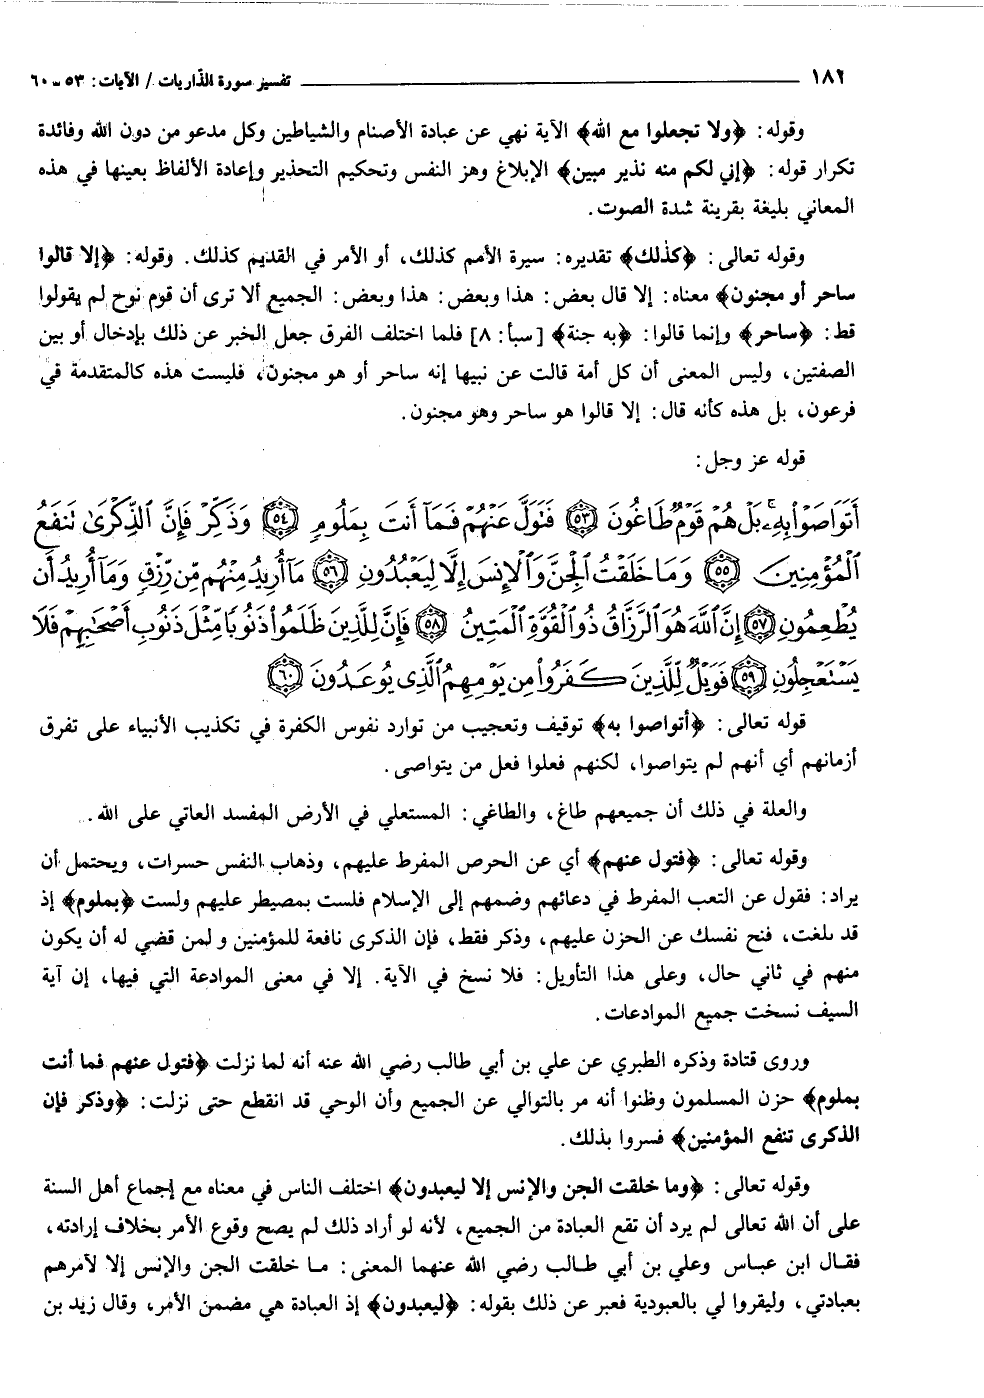 ١٨٢ تفسير سورة الذّاريات / الآيات: ٥٣ ـ ٦٠
وقوله: ﴿ولا تجعلوا مع الله﴾ الآية نهي عن عبادة الأصنام والشياطين وكل مدعو من دون الله وفائدة
تكرار قوله: ﴿إني لكم منه نذير مبين﴾ الإبلاغ وهز النفس وتحكيم التحذير وإعادة الألفاظ بعينها في هذه
المعاني بليغة بقرينة شدة الصوت.
وقوله تعالى: ﴿كذلك﴾ تقديره: سيرة الأمم كذلك، أو الأمر في القديم كذلك. وقوله: ﴿إلا قالوا
ساحر أو مجنون﴾ معناه: إلا قال بعض: هذا وبعض: هذا وبعض: الجميع ألا ترى أن قوم نوح لم يقولوا
قط: ﴿ساحر﴾ وإنما قالوا: ﴿به جنة﴾ [سبأ: ٨] فلما اختلف الفرق جعل الخبر عن ذلك بإدخال أو بين
الصفتين، وليس المعنى أن كل أمة قالت عن نبيها إنه ساحر أو هو مجنون، فليست هذه كالمتقدمة في
فرعون، بل هذه كأنه قال: إلا قالوا هو ساحر وهو مجنون.
قوله عز وجل:
أَتَوَاصَوْا۟ بِهِۦ بَلْ هُمْ قَوْمٌ طَاغُونَ ٥٣ فَتَوَلَّ عَنْهُمْ فَمَآ أَنتَ بِمَلُومٍ ٥٤ وَذَكِّرْ فَإِنَّ ٱلذِّكْرَىٰ تَنفَعُ
ٱلْمُؤْمِنِينَ ٥٥ وَمَا خَلَقْتُ ٱلْجِنَّ وَٱلْإِنسَ إِلَّا لِيَعْبُدُونِ ٥٦ مَآ أُرِيدُ مِنْهُم مِّن رِّزْقٍ وَمَآ أُرِيدُ أَن
يُطْعِمُونِ ٥٧ إِنَّ ٱللَّهَ هُوَ ٱلرَّزَّاقُ ذُو ٱلْقُوَّةِ ٱلْمَتِينُ ٥٨ فَإِنَّ لِلَّذِينَ ظَلَمُوا۟ ذَنُوبًا مِّثْلَ ذَنُوبِ أَصْحَٰبِهِمْ فَلَا
يَسْتَعْجِلُونِ ٥٩ فَوَيْلٌ لِّلَّذِينَ كَفَرُوا۟ مِن يَوْمِهِمُ ٱلَّذِى يُوعَدُونَ ٦٠
قوله تعالى: ﴿أتواصوا به﴾ توقيف وتعجيب من توارد نفوس الكفرة في تكذيب الأنبياء على تفرق
أزمانهم أي أنهم لم يتواصوا، لكنهم فعلوا فعل من يتواصى.
والعلة في ذلك أن جميعهم طاغ، والطاغي: المستعلي في الأرض المفسد العاتي على الله.
وقوله تعالى: ﴿فتول عنهم﴾ أي عن الحرص المفرط عليهم، وذهاب النفس حسرات، ويحتمل أن
يراد: فقول عن التعب المفرط في دعائهم وضمهم إلى الإسلام فلست بمصيطر عليهم ولست ﴿بملوم﴾ إذ
قد بلغت، فنح نفسك عن الحزن عليهم، وذكر فقط، فإن الذكرى نافعة للمؤمنين و لمن قضي له أن يكون
منهم في ثاني حال، وعلى هذا التأويل: فلا نسخ في الآية. إلا في معنى الموادعة التي فيها، إن آية
السيف نسخت جميع الموادعات.
وروى قتادة وذكره الطبري عن علي بن أبي طالب رضي الله عنه أنه لما نزلت ﴿فتول عنهم فما أنت
بملوم﴾ حزن المسلمون وظنوا أنه مر بالتوالي عن الجميع وأن الوحي قد انقطع حتى نزلت: ﴿وذكر فإن
الذكرى تنفع المؤمنين﴾ فسروا بذلك.
وقوله تعالى: ﴿وما خلقت الجن والإنس إلا ليعبدون﴾ اختلف الناس في معناه مع إجماع أهل السنة
على أن الله تعالى لم يرد أن تقع العبادة من الجميع، لأنه لو أراد ذلك لم يصح وقوع الأمر بخلاف إرادته،
فقال ابن عباس وعلي بن أبي طالب رضي الله عنهما المعنى: ما خلقت الجن والإنس إلا لآمرهم
بعبادتي، وليقروا لي بالعبودية فعبر عن ذلك بقوله: ﴿ليعبدون﴾ إذ العبادة هي مضمن الأمر، وقال زيد بن